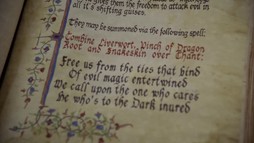 gives them the freedom to attack evil in
all it's shifting guises.
They may be summoned via the following spell:
Combine Liverwort, Pinch of Dragon
Root and Snakeskin over Chant:
Free us from the ties that bind
Of evil magic entertwined
We call upon the one who cares
He who's to the Dark inured